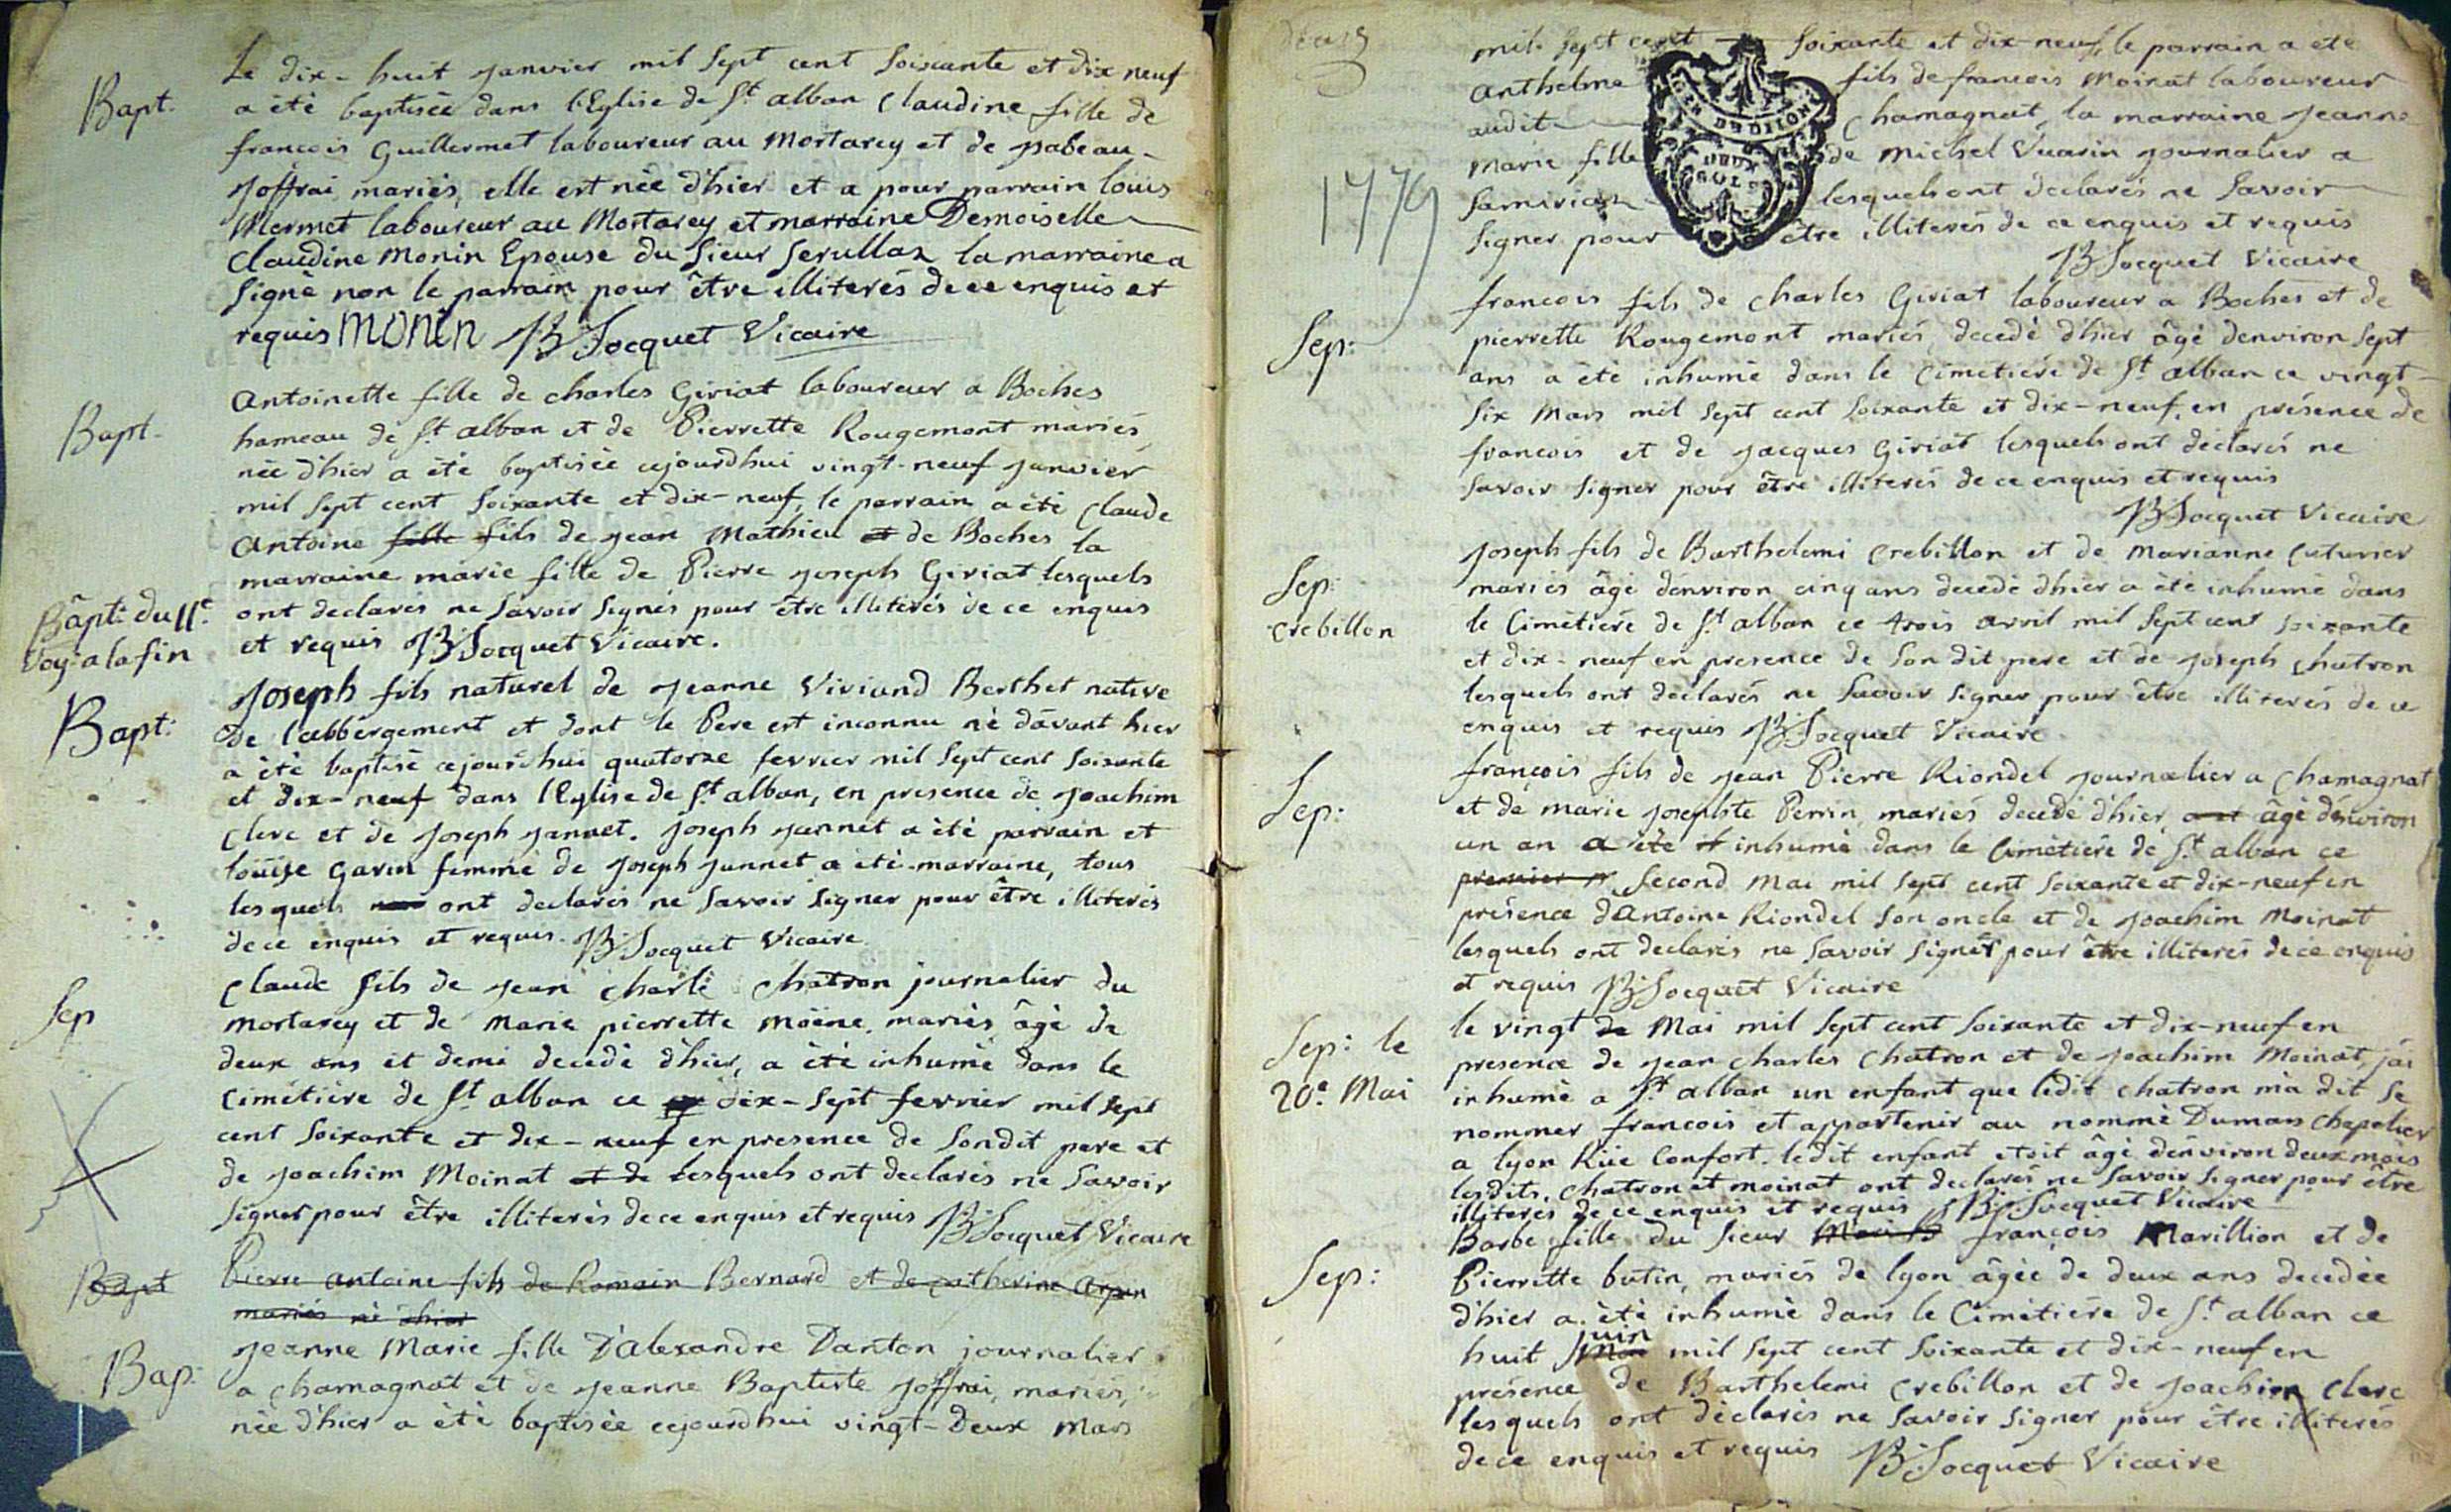 Bapt.
Le dix-huit janvier mil sept cent soixante et dix neuf
a été baptisée dans l'Eglise de St alban Claudine fille de
francois Guillermet laboureur au Mortarey et de jsabeau
Joffrai mariés, elle est née d'hier et a pour parrain louis
Mermet laboureur au Mortarey et marraine Demoiselle
Claudine Monin Epouse du Sieur Serullaz la marraine a
signé non le parrain pour être illiterés de ce enquis et
requis MONIN B Jocquet Vicaire
Bapt.
Antoinette fille de charles Giriat laboureur a Boches
hameau de St alban et de Pierrette Rougemont mariés,
née d'hier a été baptisée cejourdhui vingt-neuf janvier
mil sept cent soixante et dix-neuf, le parrain a été Claude
Antoine fille fils de jean Mathieu et de Boches la
marraine marie fille de Pierre joseph Giriat lesquels
ont declarés ne savoir signés pour être illiterés de ce enquis
et requis B Jocquet Vicaire.
Bapt: du 11e
Voy: a la fin
Bapt:
Joseph fils naturel de jeanne Viviand Berthet native
de l'abbérgement et dont le Pere est inconnu né davant hier
a été baptisé cejourdhui quatorze fevrier mil sept cent soixante
et dix-neuf dans l'Eglise de St alban, en presence de joachim
Clerc et de joseph jannet. joseph jannet a été parrain et
louise Gavin femme de joseph jannet a été marraine, tous
lesquels ont declarés ne savoir signer pour être illiterés
de ce enquis et requis. B Jocquet Vicaire
Sep
Claude fils de jean charle chatron journalier du
mortarey et de Marie pierrette Moine, mariés âgé de
deux ans et demi decedé d'hier, a été inhumé dans le
Cimétiére de St alban ce dix-sept fevrier mil sept
cent soixante et dix-neuf en presence de sondit pere et
de joachim Moinat et de lesquels ont declarés ne savoir
signer pour être illiterés de ce enquis et requis B Jocquet Vicaire
Bapt
Pierre antoine fils de Romain Bernard et de catherine arpin
mariés né d'hier
Bap:
jeanne Marie fille D'alexandre Danton journalier
a chamagnat et de jeanne Baptiste joffrai, mariés,
née d'hier a été baptisée cejourdhui vingt-Deux Mars
1779
mil sept cent soixante et dix-neuf, le parrain a été
Anthelme fils de francois Moinat laboureur
audit Chamagnat, la marraine jeanne
Marie fille de michel Vuarin journalier a
lesquels ont declarés ne savoir
signer pour être illiterés de ce enquis et requis
GEN. DE DIJON
DEUX
SOLS
B Jocquet Vicaire
Sep:
francois fils de charles Giriat laboureur a Boches et de
pierrette Rougemont mariés, decedé d'hier âgé denviron sept
ans a été inhumé dans le Cimetiére de St alban ce vingt-
six Mars mil sept cent soixante et dix-neuf, en présence de
francois et de jacques Giriat lesquels ont déclarés ne
savoir signer pour être illiterés de ce enquis et requis
B Jocquet Vicaire
Sep:
crebillon
joseph fils de Barthelemi crebillon et de Marianne cuturier
mariés âgé d'environ cinq ans decedé d'hier a été inhumé dans
le Cimétiére de St alban ce trois avril mil sept cent soixante
et dix-neuf en presence de son dit pere et de joseph chatron
lesquels ont declarés ne savoir signer pour être illiterés de ce
enquis et requis B Jocquet Vicaire
Sep:
françois fils de jean Pierre Riondel journalier a chamagnat
et de marie josephte Perrin, mariés decedé d'hier, âgé d'environ
un an a été inhumé dans le Cimétiére de St alban ce
premier second Mai mil sept cent soixante et dix-neuf en
présence d'Antoine Riondel son oncle et de joachim Moinat
lesquels ont declarés ne savoir signer pour être illiterés de ce enquis
et requis B Jocquet Vicaire
Sep: le
20e Mai
le vingt de Mai mil sept cent soixante et dix-neuf en
presence de jean charles chatron et de joachim Moinat, j'ai
inhumé a St alban un enfant que ledit chatron m'a dit se
nommer francois et appartenir au nommé Dumas chapelier
a lyon Rüe Confort. ledit enfant etoit âgé d'environ deux mois
lesdits chatron et moinat ont declarés ne savoir signer pour être
illiterés de ce enquis et requis B Jocquet Vicaire
Sep:
Barbe fille du sieur françois Marillion et de
Pierrette butin, mariés de lyon âgée de deux ans decedée
d'hier a été inhumé dans le Cimétiére de St alban ce
juin
huit Mai mil sept cent soixante et dix-neuf en
présence de Barthelemi crebillon et de joachim Clerc
lesquels ont déclarés ne savoir signer pour être illiterés
de ce enquis et requis B Jocquet Vicaire